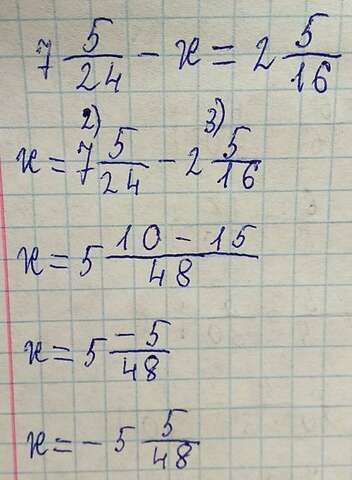 7 5/24 - x = 2 5/16
x = 7 5/24 2) - 2 5/16 3)
x = 5 (10 - 15)/48
x = 5 (-5)/48
x = - 5 5/48